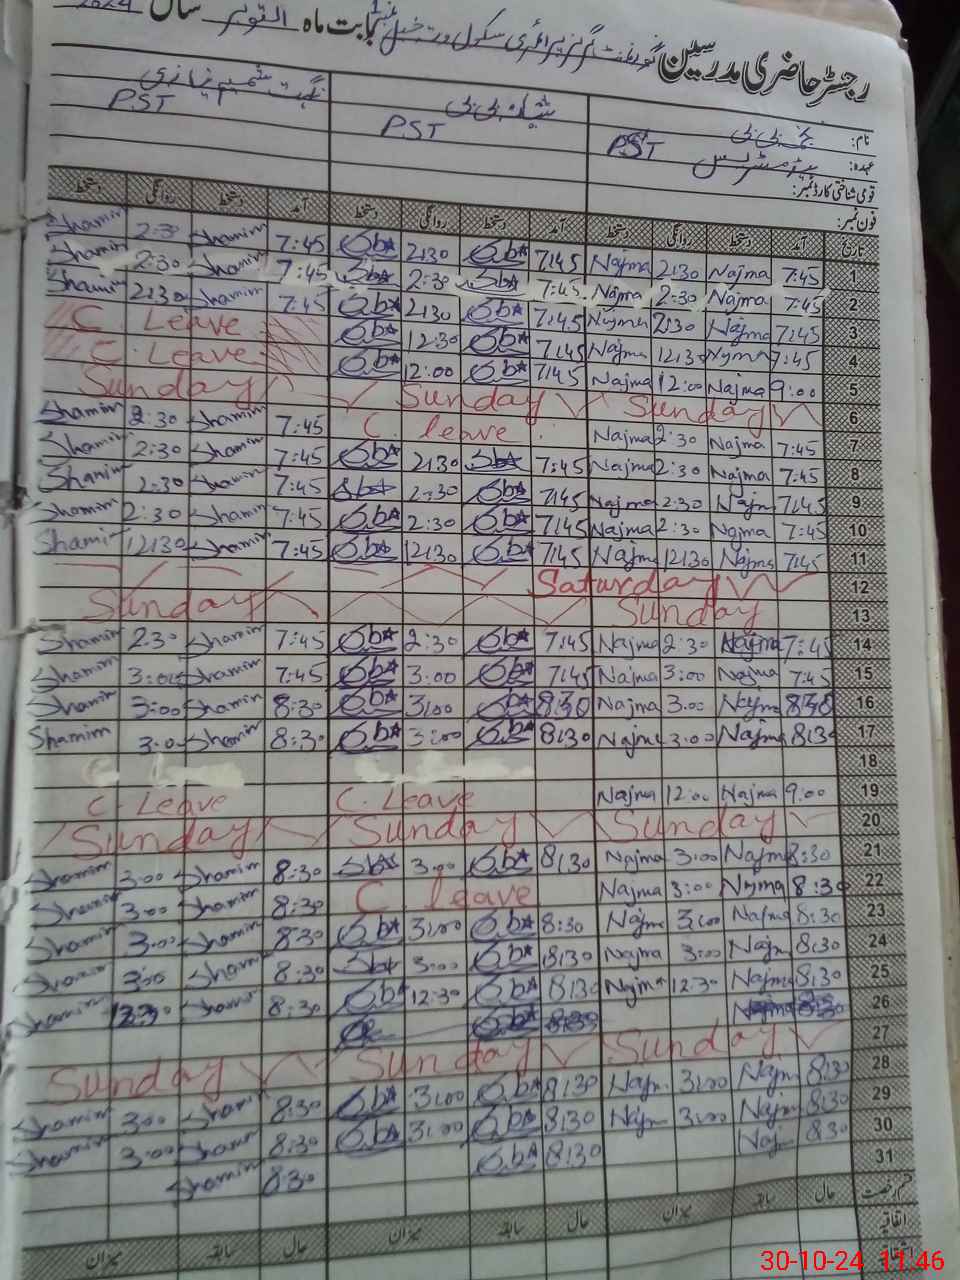 2024 سال اکتوبر بابت ماہ گورنمنٹ گرلز پرائمری سکول رجسٹر حاضری مدرسین
نام: نجمہ بی بی شاہدہ بی بی نگہت شمیم نیازی
عہدہ: ہیڈمسٹریس PST PST PST
قومی شناختی کارڈ نمبر:
فون نمبر:
تاریخ آمد دستخط روانگی دستخط آمد دستخط روانگی دستخط آمد دستخط روانگی دستخط
Shamim 2:30 Shamim 7:45 2:30 7:45 Najma 2:30 Najma 7:45 1
Shamim 2:30 Shamim 7:45 2:30 7:45 Najma 2:30 Najma 7:45 2
Shamim 2:30 Shamim 7:45 2:30 7:45 Najma 2:30 Najma 7:45 3
C. Leave 12:30 7:45 Najma 12:30 Najma 7:45 4
C. Leave 12:00 7:45 Najma 12:00 Najma 9:00 5
Sunday Sunday Sunday 6
Shamim 2:30 Shamim 7:45 C. leave Najma 2:30 Najma 7:45 7
Shamim 2:30 Shamim 7:45 2:30 7:45 Najma 2:30 Najma 7:45 8
Shamim 2:30 Shamim 7:45 2:30 7:45 Najma 2:30 Najma 7:45 9
Shamim 2:30 Shamim 7:45 2:30 7:45 Najma 2:30 Najma 7:45 10
Shamim 12:30 Shamim 7:45 12:30 7:45 Najma 12:30 Najma 7:45 11
Saturday 12
Sunday Sunday 13
Shamim 2:30 Shamim 7:45 2:30 7:45 Najma 2:30 Najma 7:45 14
Shamim 3:00 Shamim 7:45 3:00 7:45 Najma 3:00 Najma 7:45 15
Shamim 3:00 Shamim 8:30 3:00 8:30 Najma 3:00 Najma 8:30 16
Shamim 3:00 Shamim 8:30 3:00 8:30 Najma 3:00 Najma 8:30 17
18
C. Leave C. Leave Najma 12:00 Najma 9:00 19
Sunday Sunday Sunday 20
Shamim 3:00 Shamim 8:30 3:00 8:30 Najma 3:00 Najma 8:30 21
Shamim 3:00 Shamim 8:30 C leave Najma 3:00 Najma 8:30 22
Shamim 3:00 Shamim 8:30 3:00 8:30 Najma 3:00 Najma 8:30 23
Shamim 3:00 Shamim 8:30 3:00 8:30 Najma 3:00 Najma 8:30 24
Shamim 12:30 Shamim 8:30 12:30 8:30 Najma 12:30 Najma 8:30 25
8:30 Najma 8:30 26
Sunday Sunday Sunday 27
Shamim 3:00 Shamim 8:30 3:00 8:30 Najma 3:00 Najma 8:30 28
Shamim 3:00 Shamim 8:30 3:00 8:30 Najma 3:00 Najma 8:30 29
Shamim 8:30 8:30 Najma 8:30 30
31
قسم رخصت حال سابقہ میزان حال سابقہ میزان حال سابقہ میزان
اتفاقیہ
30-10-24 11:46